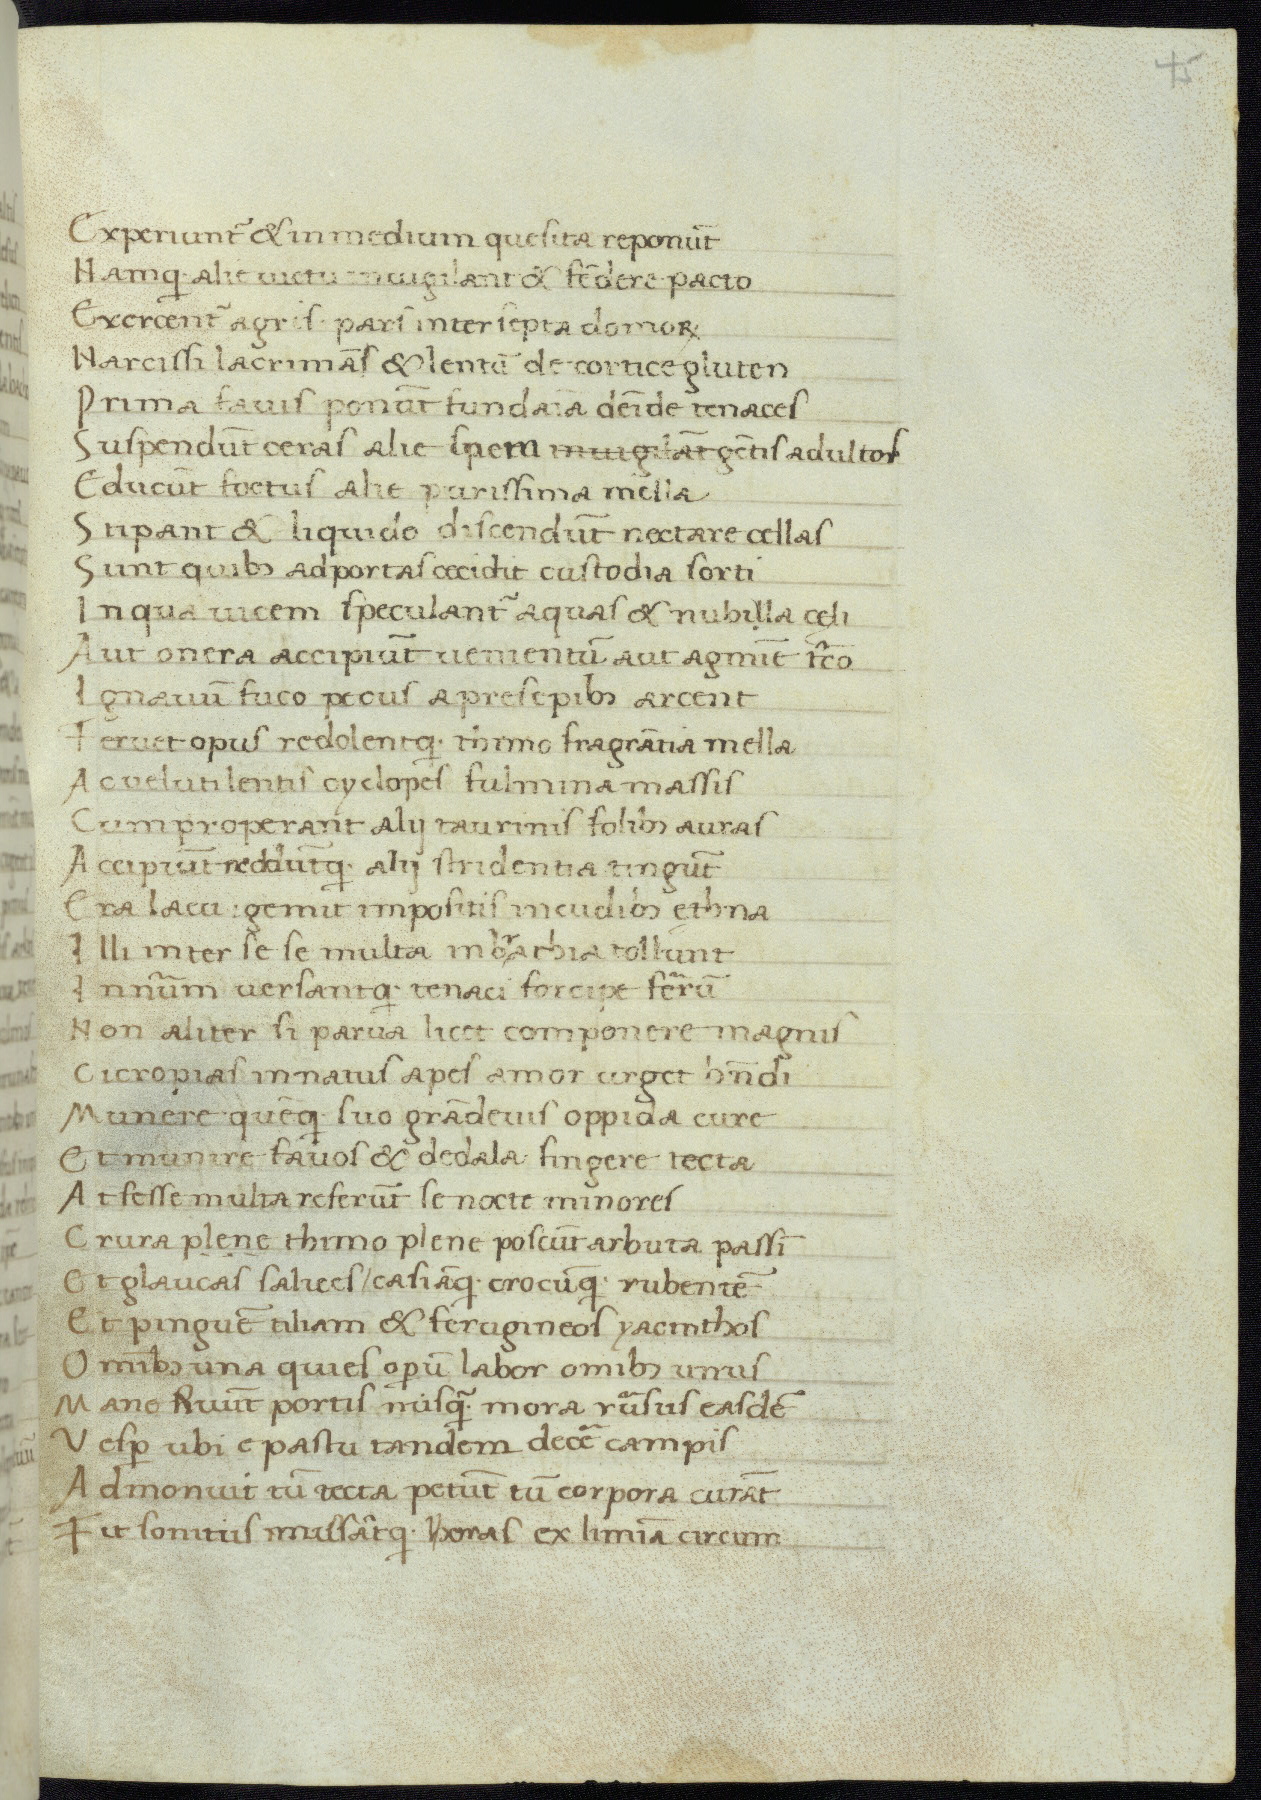 45
Experiunt᷑ & in medium quesita reponūt
Namq· alie victu invigilant & fēdere pacto
Exercent᷑ agris· pars intersepta domoꝝ
Narcissi lacrimās & lentū de cortice gluten
Prima favis ponūt fundam̄a deīde tenaces
Suspendūt ceras alie spem invigilāt gētis adultos
Educūt foetus alie purissima mella
Stipant & liquido discendūt nectare cellas
Sunt quibꝫ ad portas cecidit custodia sorti
Inqua vicem speculant᷑ aquas & nubilla cęli
Aut onera accipiūt venientū aut agmīe fc̄o
Ignavū fuco pecus a presepibꝫ arcent
Fervet opus redolentq· thimo fragrātia mella
Ac veluti lentis cyclopes fulmina massis
Cum properant alij taurinis folibꝫ auras
Accipiūt reddūtq· alij stridentia tingūt
Era lacu : gemit impositis incudibꝫ ethna
Illi inter se se multa in brachia tollunt
In nūm versantq· tenaci forcipe ferrū
Non aliter si parva licet componere magnis
Cicropias innatus apes amor urget hn̄di
Munere quēq· suo grādevis oppida cure
Et munire favos & dedala fingere tecta
At fesse multa referūt se nocte minores
Crura plene thimo plene poscūt arbuta passī
Et glaucas salices / casiāq· crocūq· rubentē
Et pinguē tiliam & ferugineos yacinthos
Omībꝫ una quies opū labor omībꝫ unus
Mane Ruūt portis nusq̄· mora rūsus easdē
Vesꝑ ubi e pastu tandem decē campis
Admonuit tū tecta petūt tū corpora curāt
Fit sonitus mussātq· horas ex limīa circum